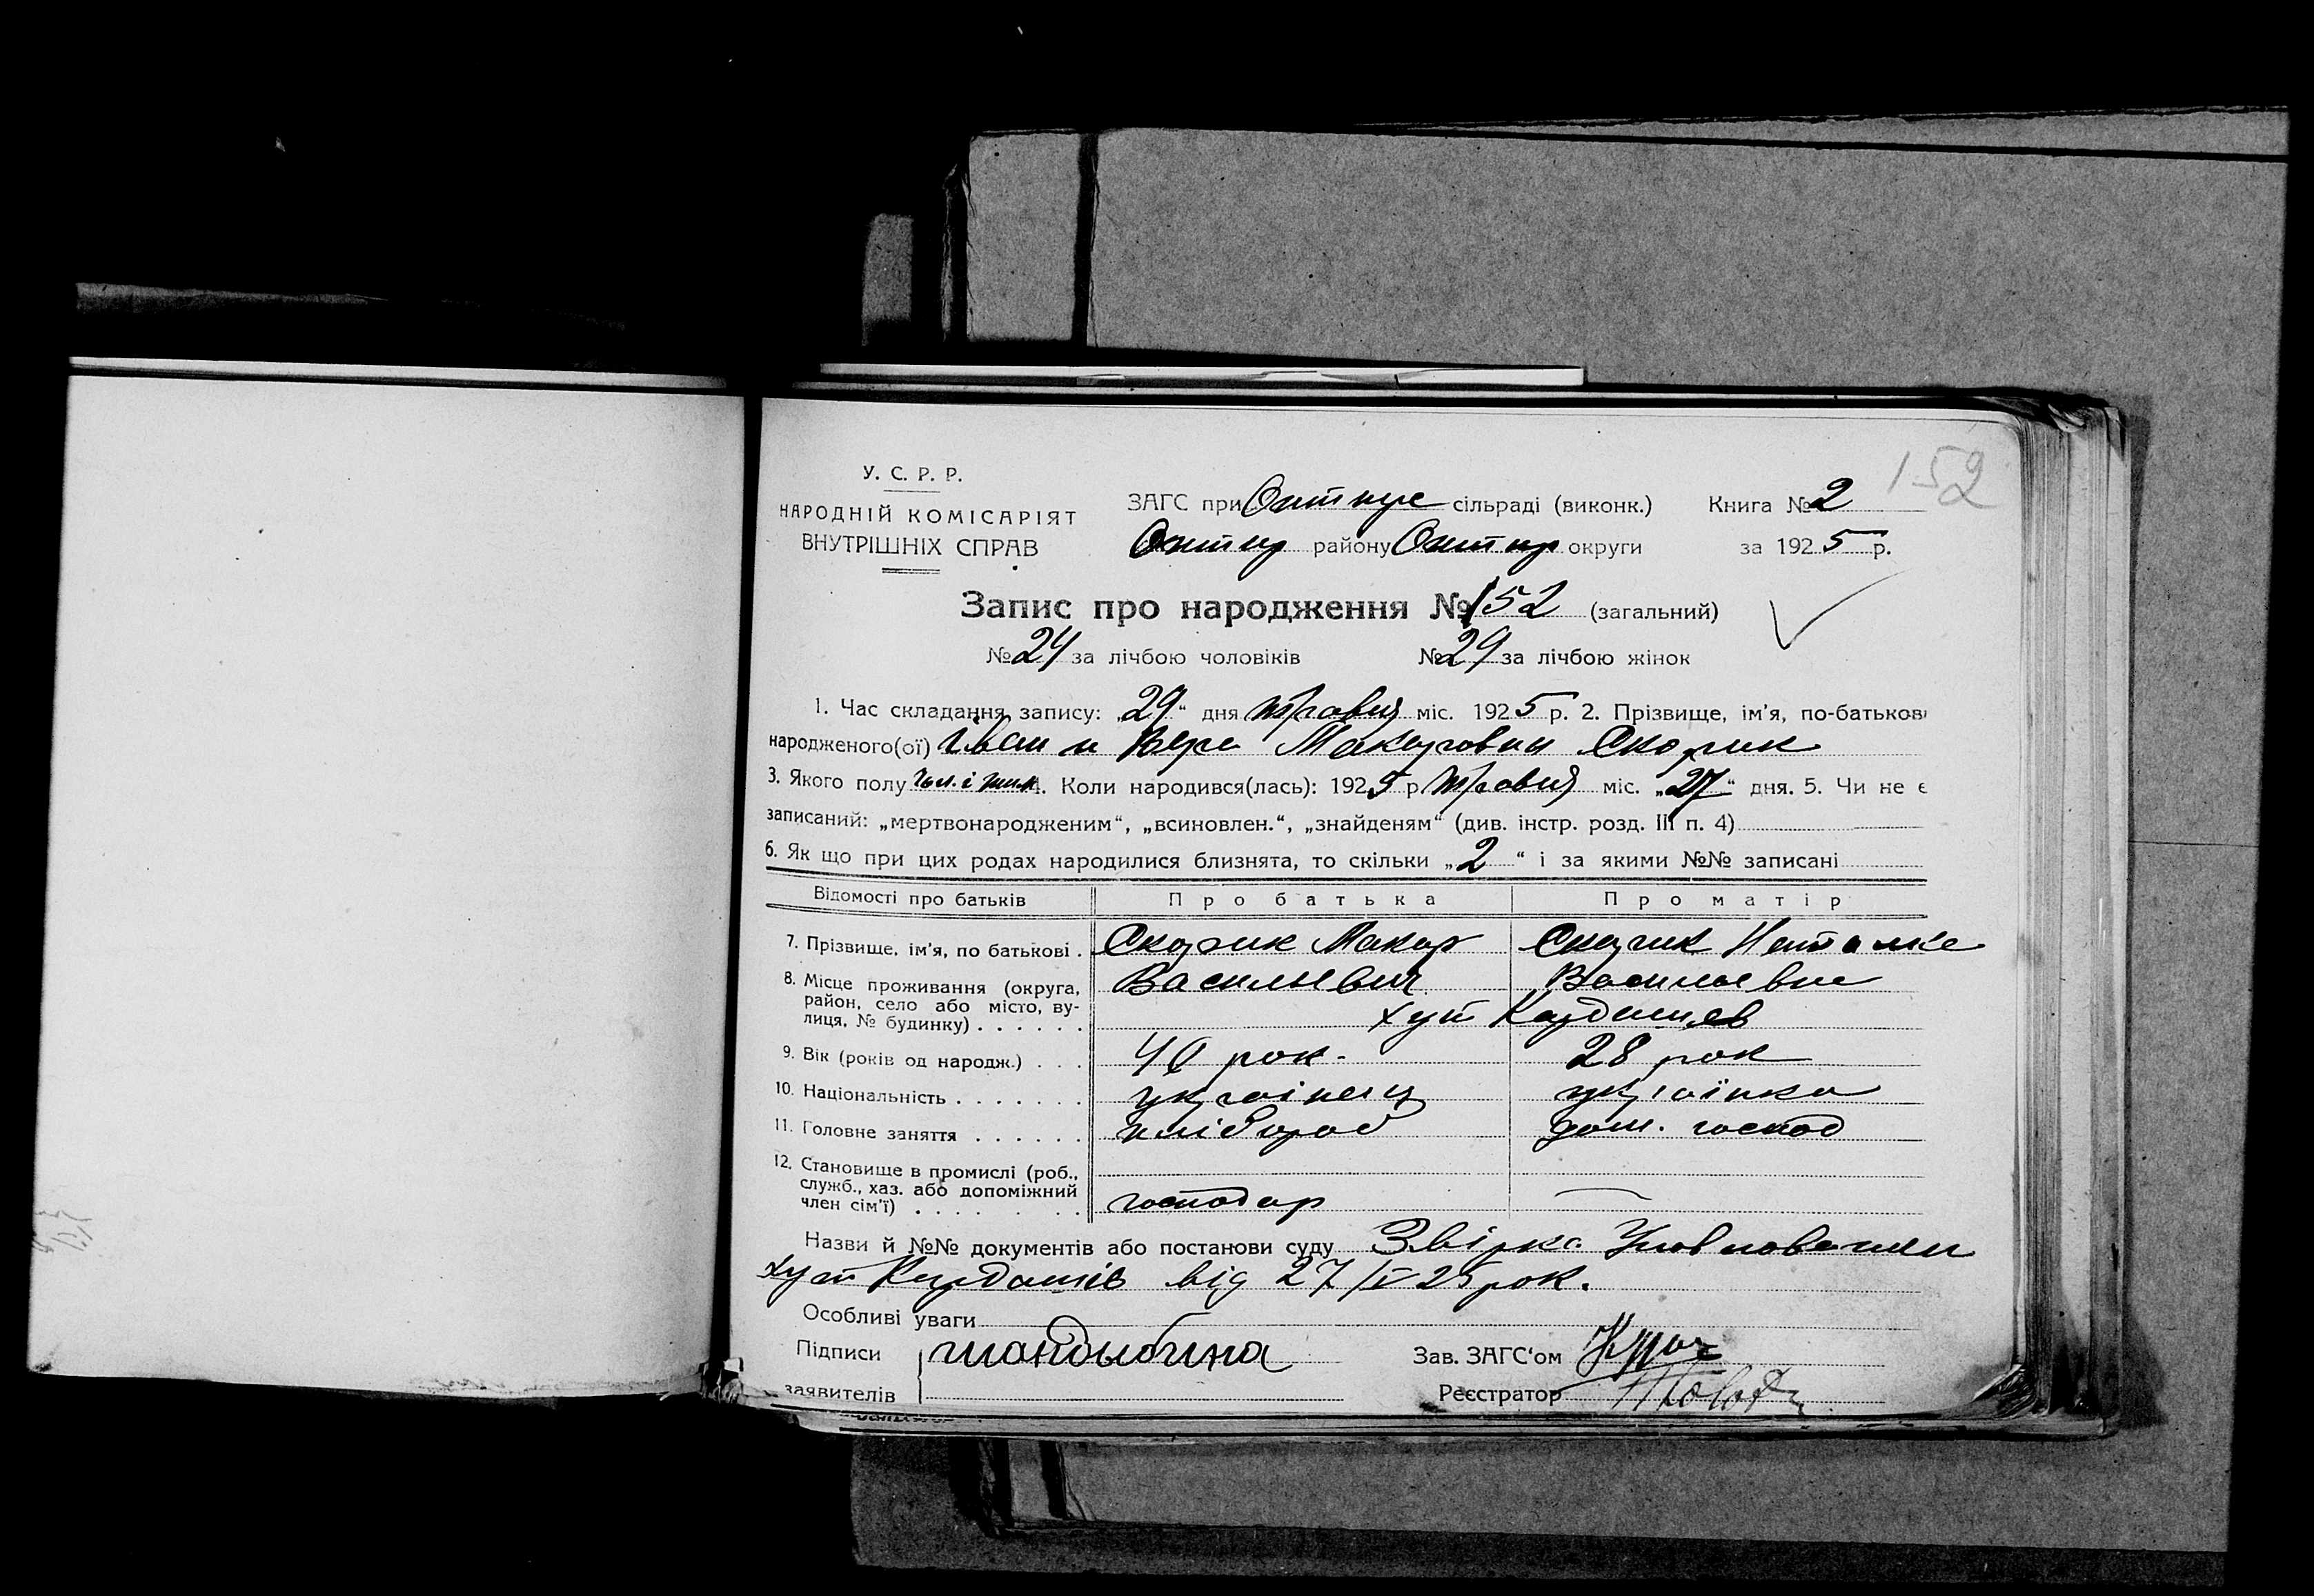 152
У. С. Р. Р.
НАРОДНІЙ КОМІСАРІЯТ
ВНУТРІШНІХ СПРАВ
ЗАГС при сільраді (виконк.) Книга № 2
району округи за 1925 р.
Запис про народження № 152 (загальний)
№ 24 за лічбою чоловіків № 29 за лічбою жінок
1. Час складання запису: „29“ дня травня міс. 1925 р. 2. Прізвище, ім'я, по-батькові
народженого(ої) Іван и Вера Макаровы Скорик
3. Якого полу чол. і жін. 4. Коли народився(лась): 1925 р травня міс. „27“ дня. 5. Чи не є
записаний: „мертвонародженим“, „всиновлен.“, „знайденям“ (див. інстр. розд. III п. 4)
6. Як що при цих родах народилися близнята, то скільки „2“ і за якими №№ записані
Відомості про батьків Про батька Про матір
7. Прізвище, ім'я, по батькові . Скорик Макар Скорик Наталка
8. Місце проживання (округа, Васильевич Васильевна
район, село або місто, ву-
лиця, № будинку) . . . . . . хут Кардашів
9. Вік (років од народж.) . . . 40 рок. 28 рок
10. Національність . . . . . . . українец українка
11. Головне заняття . . . . . . хлібороб дом. господ
12. Становище в промислі (роб.,
служб., хаз. або допоміжний
член сім'ї) . . . . . . . господар —
Назви й №№ документів або постанови суду
хут Кардашів від 27/V 25 рок.
Особливі уваги
Підписи Зав. ЗАГС'ом
заявителів Реєстратор